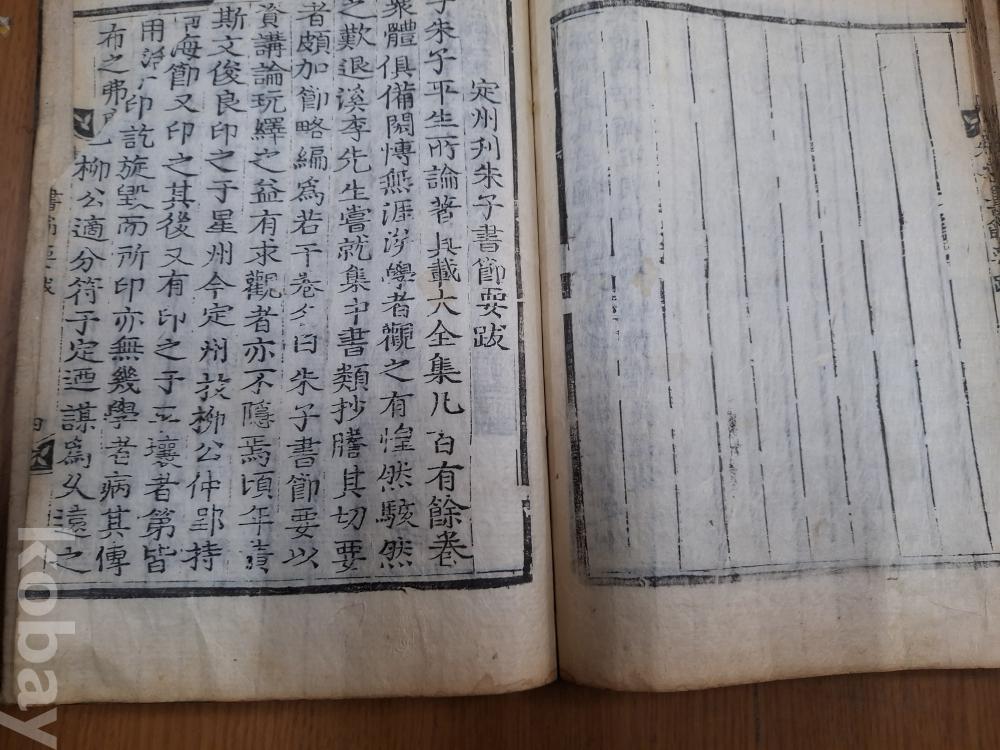 定州刋朱子書節要跋
子朱子平生所論著具載大全集凡百有餘卷
衆體俱備閎博無涯涘學者觀之有惶然駭然
之歎退溪李先生嘗就集中書類抄謄其切要
者頗加節略編爲若干卷名曰朱子書節要以
資講論玩繹之益有求觀者亦不隱焉頃年黃
斯文俊良印之于星州今定州牧柳公仲郢持
海節又印之其後又有印之于 壤者第皆
用 印訖旋毁而所印亦無幾學者病其傳
布之弗 柳公適分符于定迺謀爲久遠之
書節要跋
四
kobay